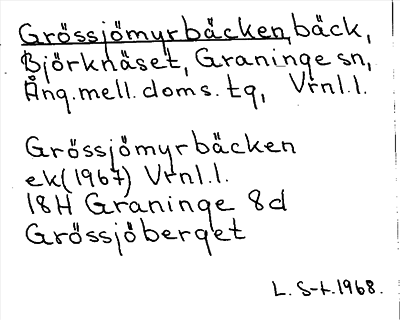 Grössjömyrbäcken, bäck,
Björknäset, Graninge sn,
Ång.mell.doms.tg, Vrnl.l.
Grössjömyrbäcken
ek(1967) Vrnl.l.
18H Graninge 8d
Grössjöberget
L. S-t. 1968.